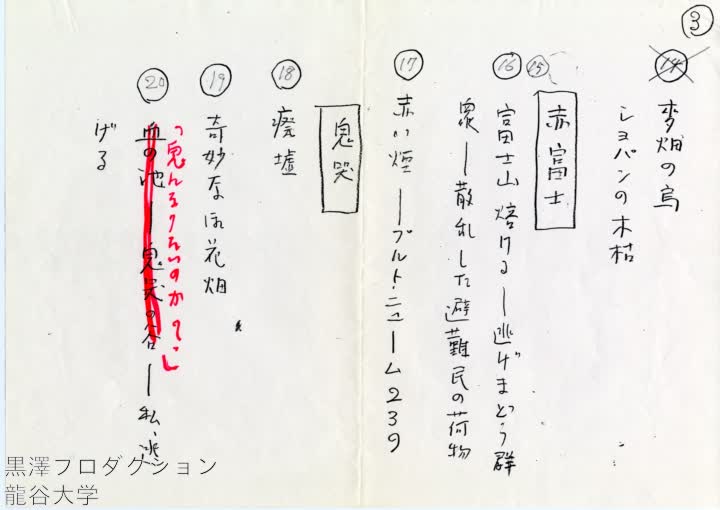 ③
14
麦畑の烏
ショパンの木枯
⑮
赤富士
⑯
富士山熔ける―逃げまどう群
衆―散乱した避難民の荷物
⑰
赤い煙―プルト・ニューム239
鬼哭
⑱
廃墟
⑲
奇妙なお花畑
⑳
血の池―鬼哭の谷―私、逃
げる
黒澤プロダクション
龍谷大学